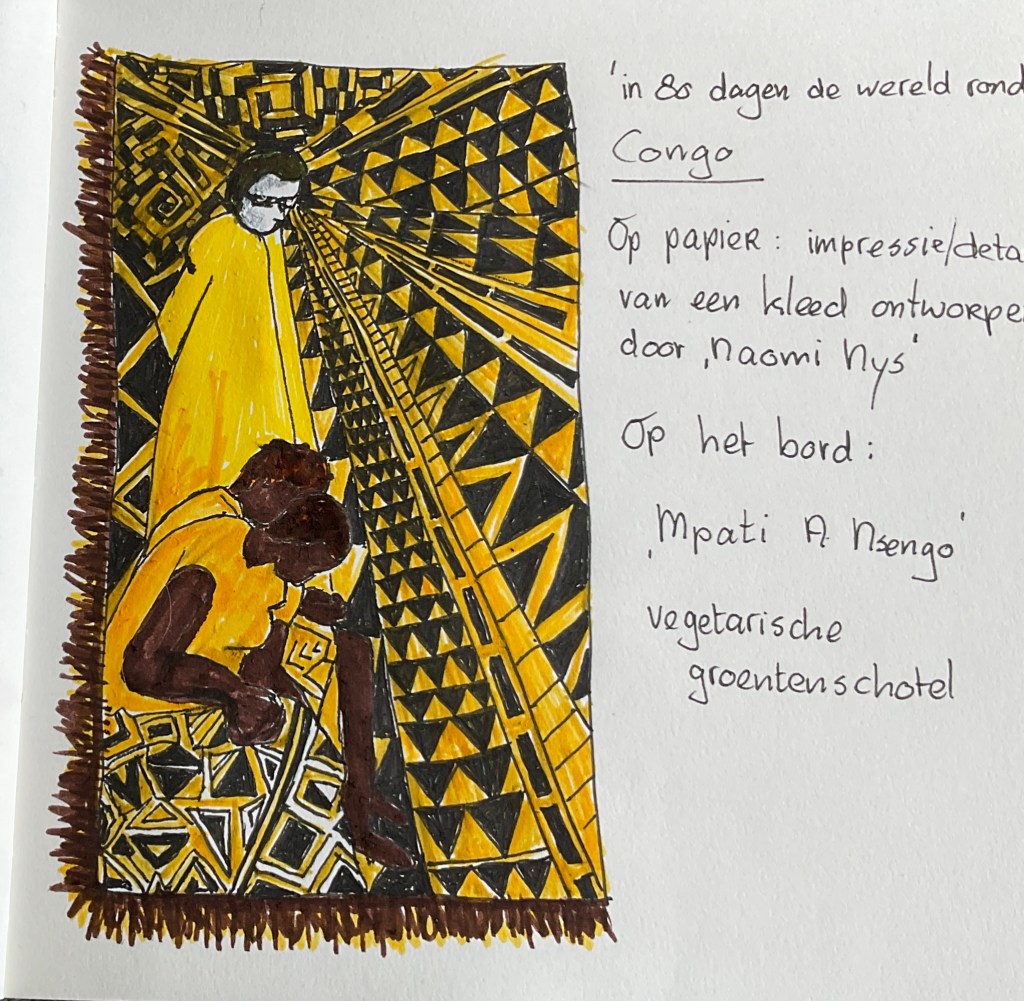 'in 80 dagen de wereld rond
Congo
Op papier: impressie/deta
van een kleed ontworpe
door ,Naomi Nys'
Op het bord:
,Mpati A Nsengo'
vegetarische
groentenschotel